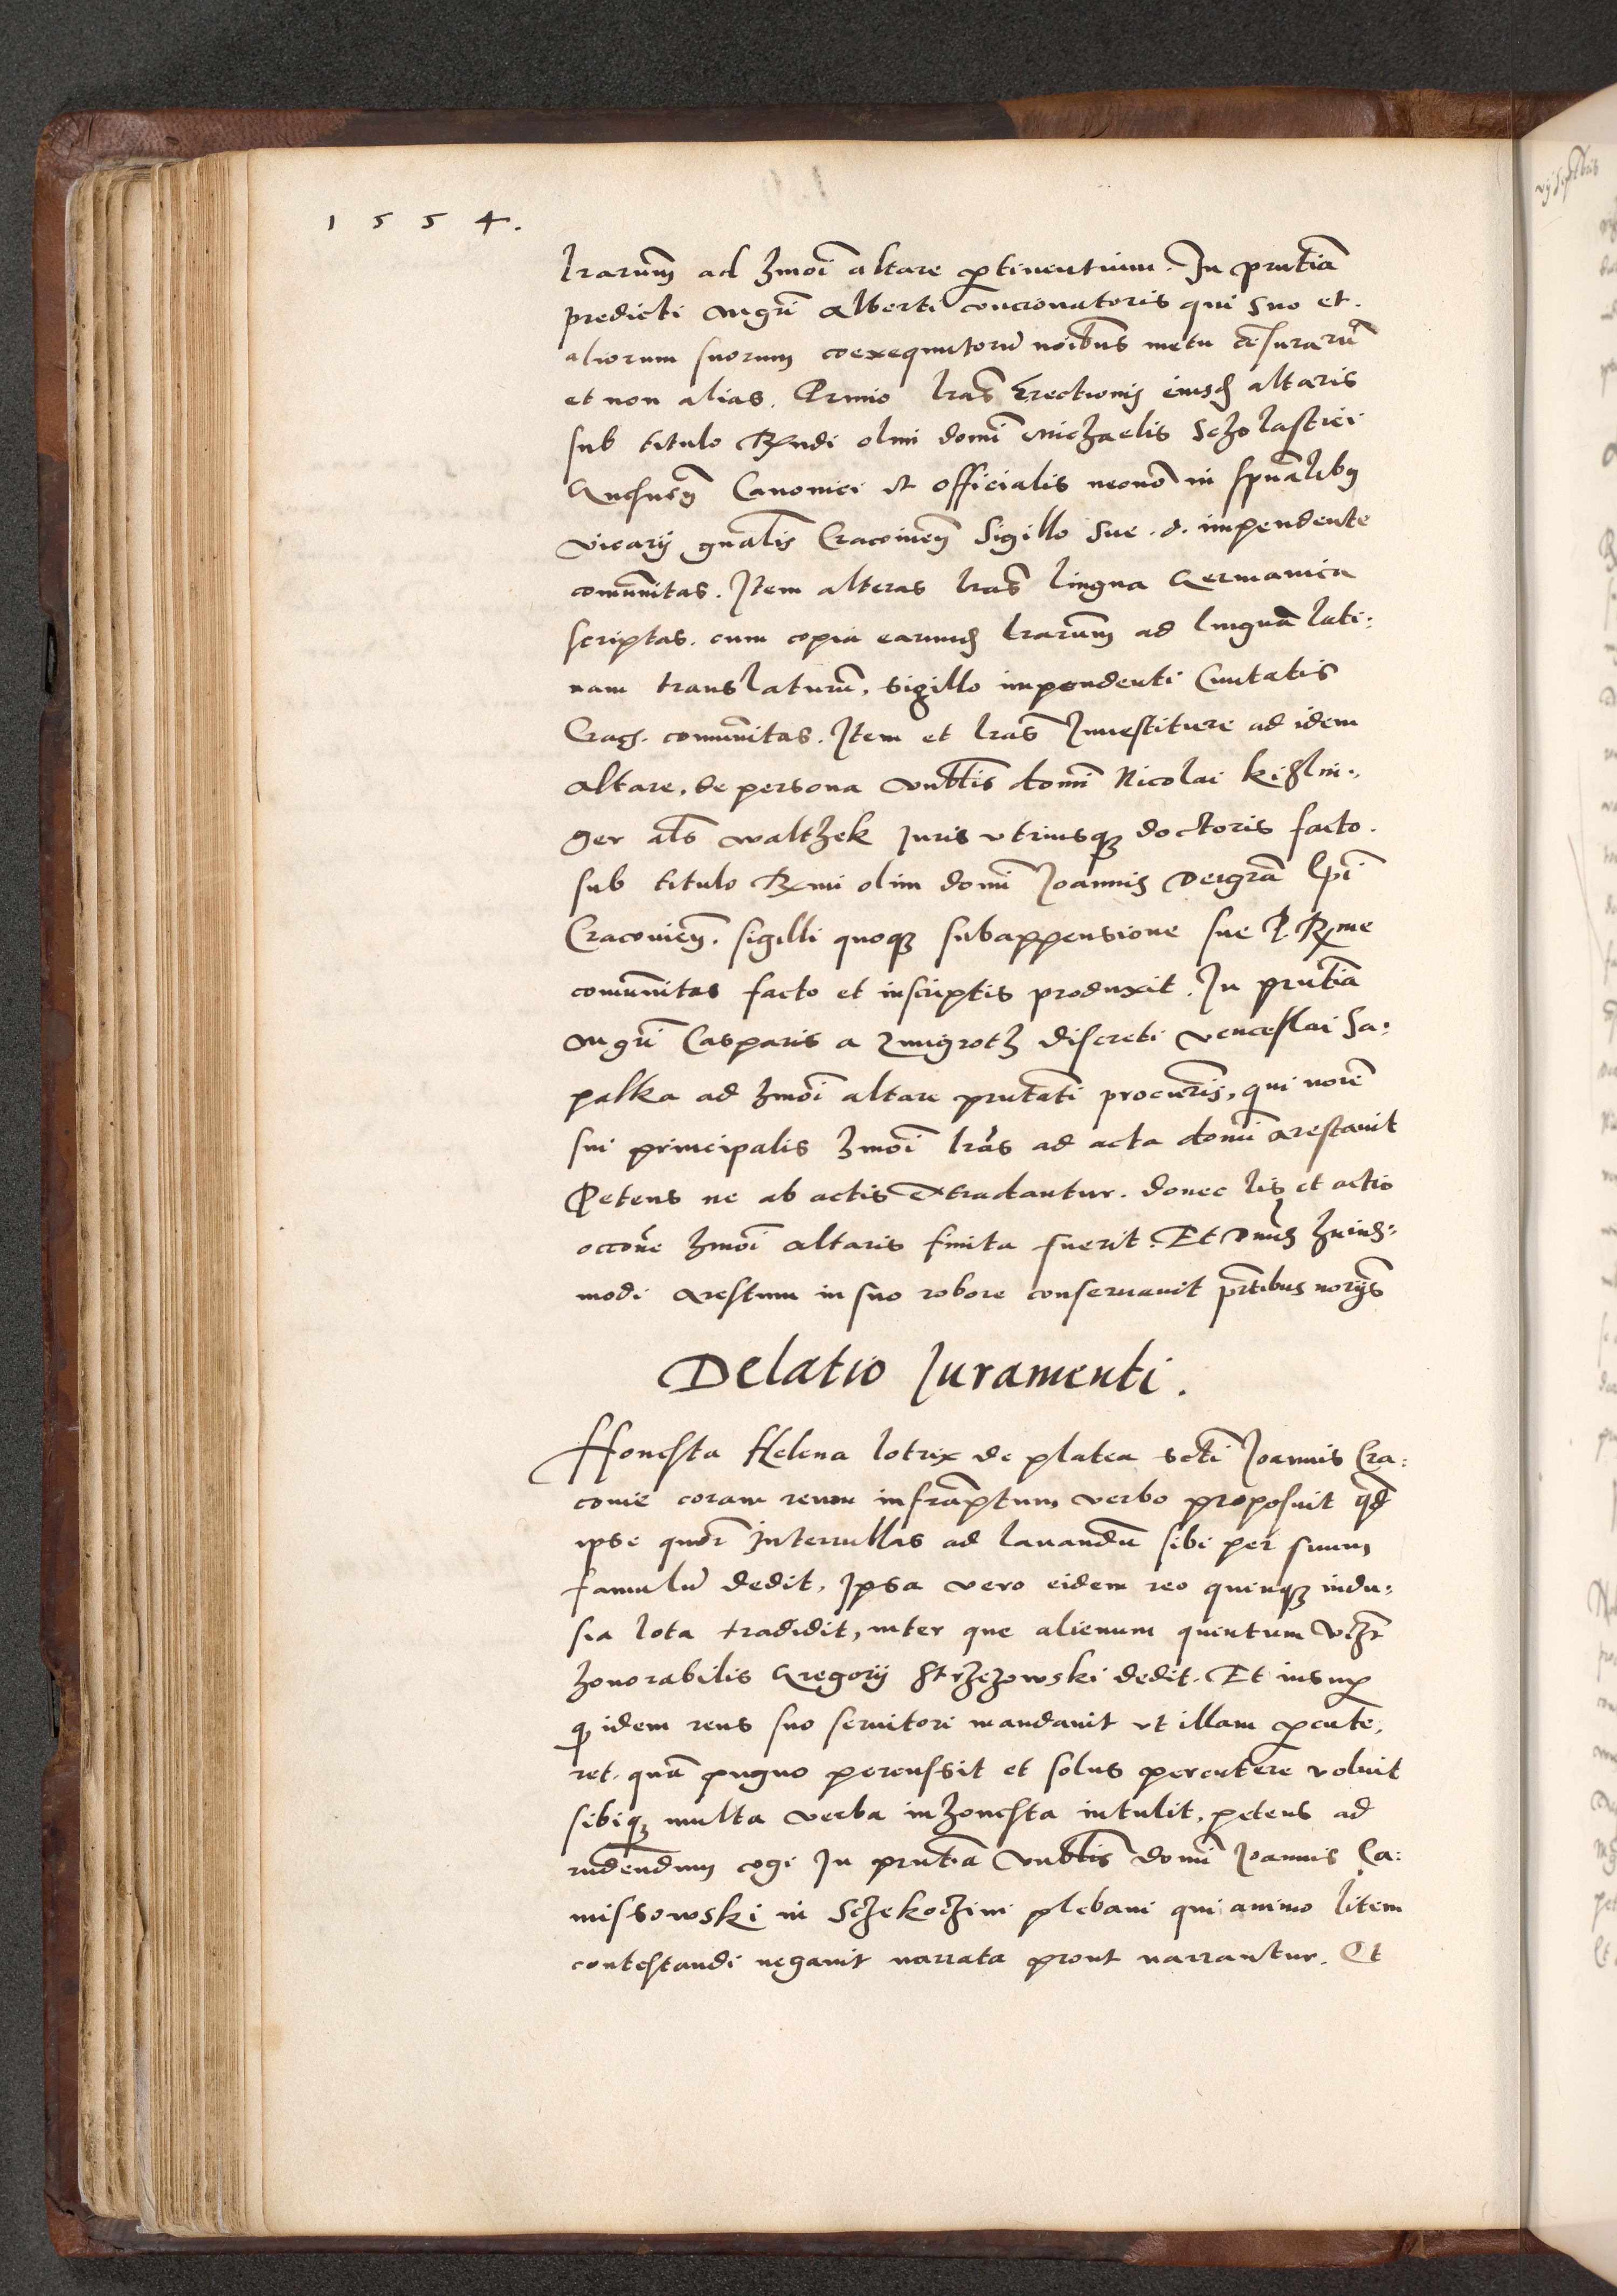 1554.
lrarum ad hmoi altare ptinentium. In pntia
predicti mgri Alberti concionatoris qui suo et
aliorum suorum coexequutorum noibus metu censurarum
et non alias. Primo lras Erectionis eiusd altaris
sub titulo Rndi olim domi Michaelis Scholastici
Canonici et officialis necno in spualibus
vicarij gnalis Cracovien Sigillo sue d. impendente
comunitas. Item alteras lras lingua Germanica
scriptas. cum copia earund lrarum ad linguam lati:
nam translaturum, sigillo impendenti Civitatis
Crac. comunitas. Item et lras Investiture ad idem
altare, de persona vnblis domi Nicolai Kislin:
ger als Walthek Juris vtriusque doctoris facto.
sub titulo Rmi olim domi Joannis Dei gra Epi
Cracovien. sigilli quoque subappensione sue P. Rme
comunitas facto et inscriptis produxit. In pntia
mgri Casparis a Zmigroth discreti Venceslai Sa:
palka ad hmoi altare pntati procuris, qui noie
sui principalis hmoi lras ad acta domi arestavit
Petens ne ab actis extradantur. donec lis et actio
occone hmoi altaris finita fuerit. Et Dnus huius:
modi arestum in suo robore conservavit prtibus
Delatio Juramenti.
Honesta Helena lotrix de platea scti Joannis Cra:
covie coram reum infrascriptum verbo proposuit qd
ipse quor Interullas ad lauandum sibi per suum
famulum dedit, Ipsa vero eidem reo quinque indu:
sia lota tradidit, inter que alienum quintum vzt
honorabilis Gregorij Strzezowski dedit. Et insup
q idem reus suo servitori mandavit vt illam pcute:
ret. qua pugno percussit et solus percutere voluit
sibique multa verba inhonesta intulit, petens ad
rndendum cogi In pntia vnblis domi Joannis Ca:
missowski in Sczekoczini plebani qui animo litem
contestandi negavit narrata prout narrantur. Et